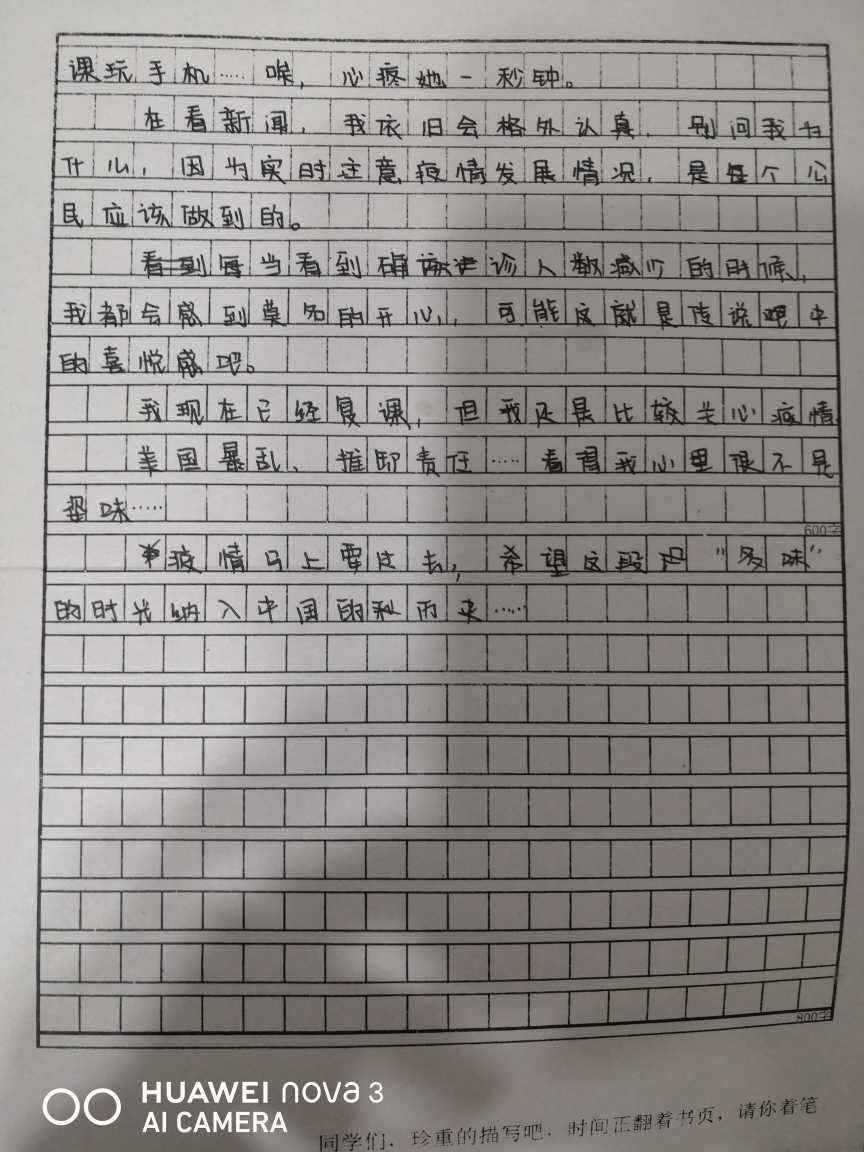 课玩手机……唉，心疼她一秒钟。
在看新闻，我依旧会格外认真，别问我为
什么，因为实时注意疫情发展情况，是每个公
民应该做到的。
看到每当看到确诊人数减少的时候，
我都会感到莫名的开心，可能这就是传说吧中
的喜悦感吧。
我现在已经复课，但我还是比较关心疫情，
美国暴乱、推卸责任……看得我心里很不是
滋味……
600字
疫情马上要过去，希望这段"多味"
的时光纳入中国的私而来……
800字
HUAWEI nova 3
AI CAMERA
同学们，珍重的描写吧，时间正翻着书页，请你着笔